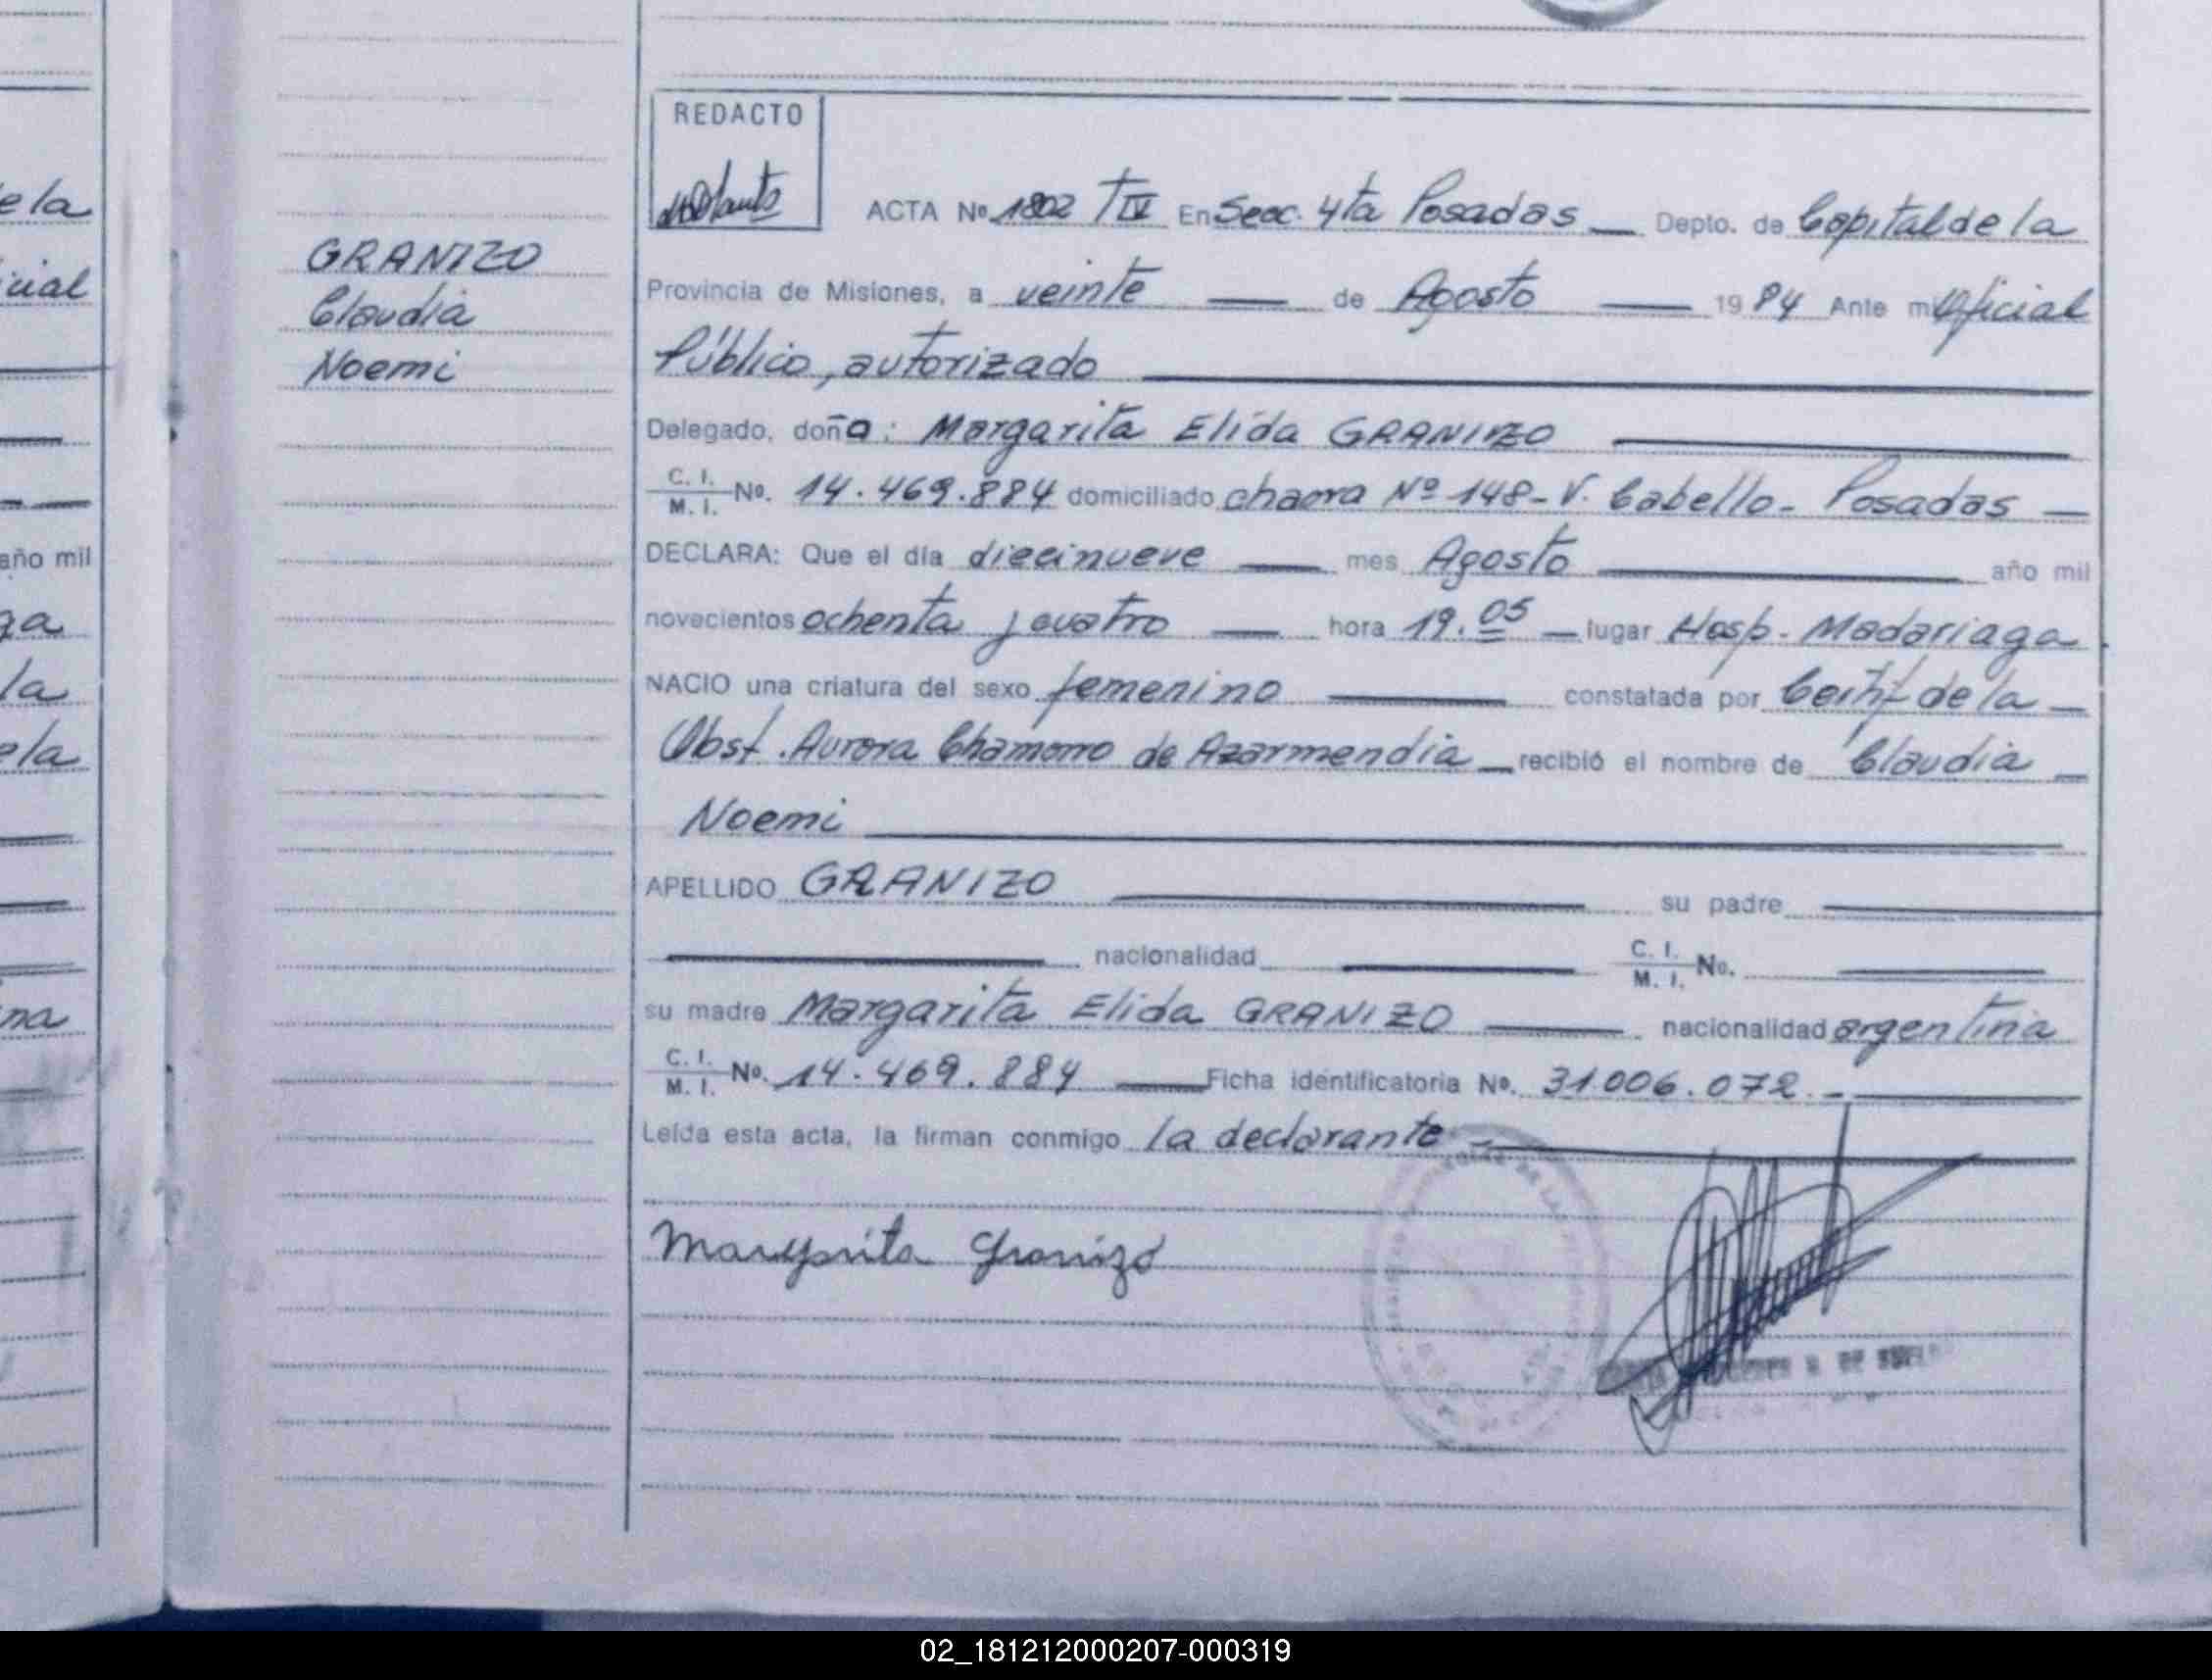 REDACTO
ACTA Nº 1802 TIV En Secc. 4ta Posadas Depto. de Capital de la
GRANIZO
Claudia
Noemi
Provincia de Misiones, a veinte de Agosto 1984 Ante mi Oficial
Público, autorizado
Delegado, doña: Margarita Elida GRANIZO
C. I. / M. I. Nº. 14.469.884 domiciliado chacra Nº 148 - V. Cabello - Posadas
DECLARA: Que el día diecinueve mes Agosto año mil
novecientos ochenta y cuatro hora 19.05 lugar Hosp. Madariaga
NACIO una criatura del sexo femenino constatada por Certif de la
Obst. Aurora Chamorro de Azarmendia recibió el nombre de Claudia
Noemi
APELLIDO GRANIZO su padre
nacionalidad C. I. / M. I. No.
su madre Margarita Elida GRANIZO nacionalidad argentina
C. I. / M. I. Nº. 14.469.884 Ficha identificatoria Nº. 31.006.072.-
Leída esta acta, la firman conmigo la declarante
Margarita Granizo
ela
cial
año mil
ga
la
ela
na
02_181212000207-000319